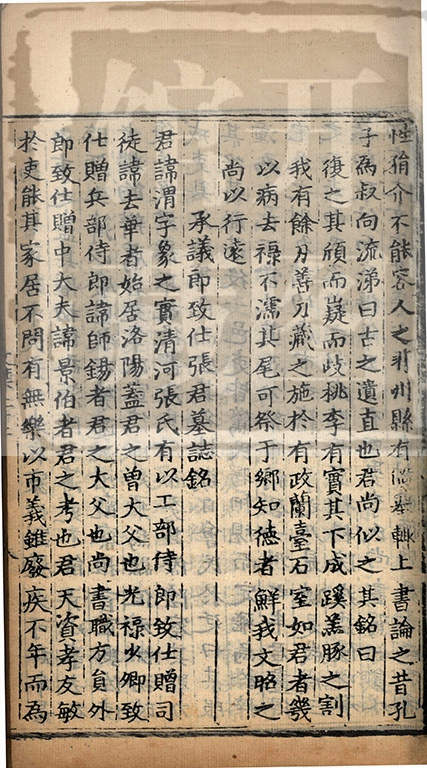 性狷介不能容人之非州縣有治舉輙上書論之昔孔
子為叔向流涕曰古之遺直也君尚似之其銘曰
復之其頎而嶷而歧桃李有實其下成蹊羔豚之割
我有餘刃善刀藏之施於有政蘭臺石室如君者幾
以病去祿不濡其尾可祭于鄉知德者鮮我文昭之
尚以行遠
承議郎致仕張君墓誌銘
君諱渭字象之實清河張氏有以工部侍郎致仕贈司
徒諱去華者始居洛陽蓋君之曾大父也光祿少卿致
仕贈兵部侍郎諱師錫者君之大父也尚書職方員外
郎致仕贈中大夫諱景伯者君之考也君天資孝友敏
於吏能其家居不問有無樂以市義雖廢疾不年而為